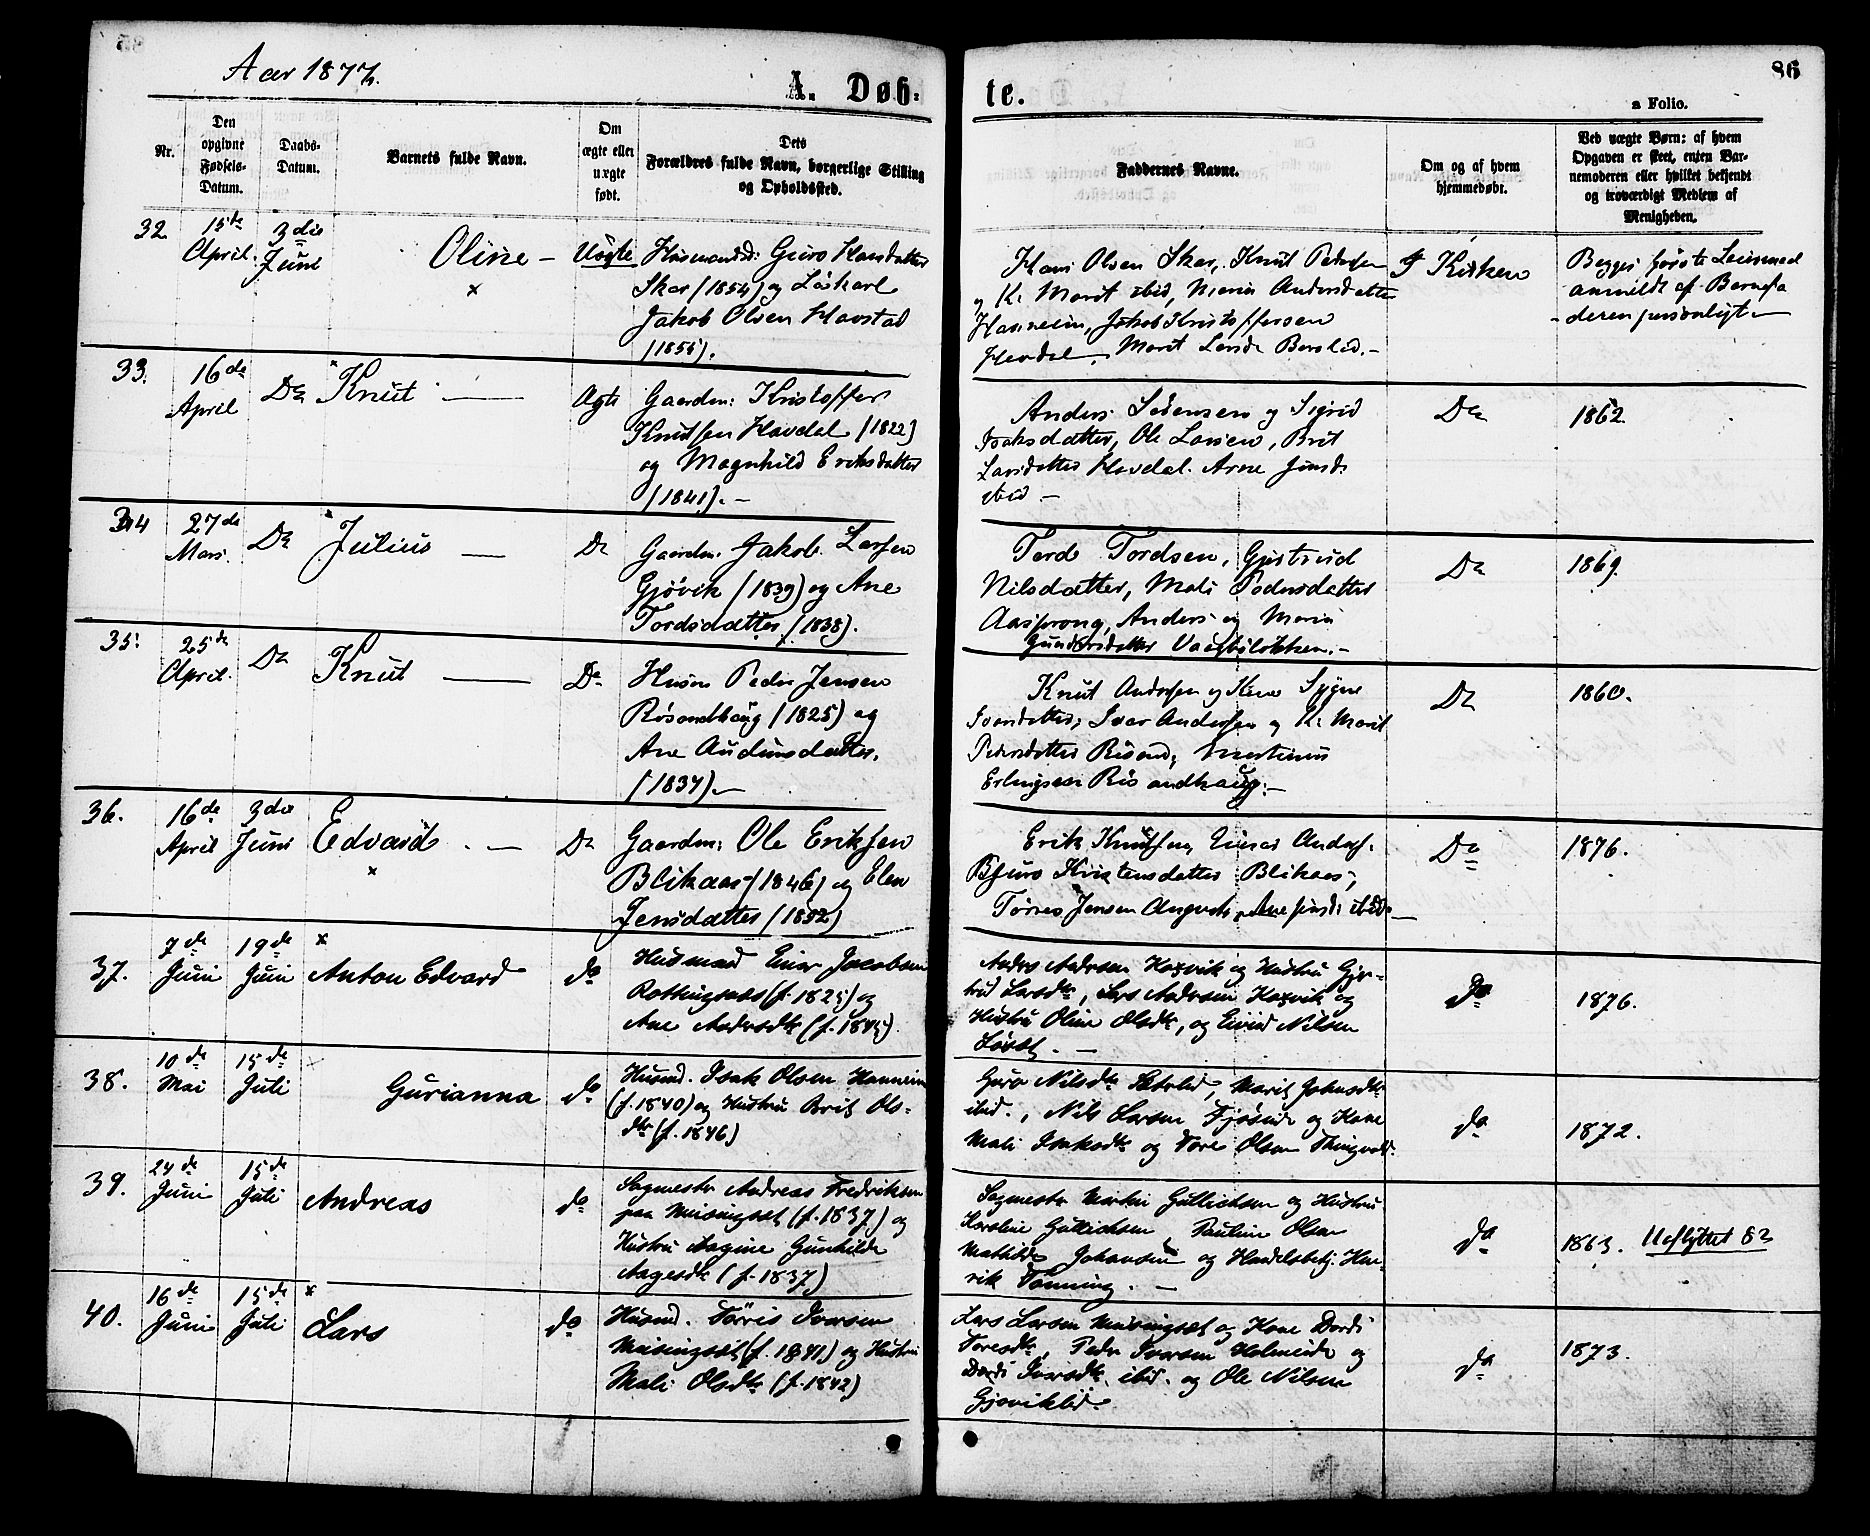 86
Aar 1877.
A. Døb-
te.
a Folio.
Nr.
Den
opgivne
Fødsels-
Datum.
Daabs-
Datum.
Barnets fulde Navn.
Om
ægte eller
uægte
født.
Dets
Forældres fulde Navn, borgerlige Stilling
og Opholdssted.
Faddernes Navne.
Om og af hvem
hjemmedøbt.
Ved uægte Børn: af hvem
Opgaven er skeet, enten Bar-
nemoderen eller hvilket bekjendt
og troværdigt Medlem af
Menigheden.
32.
15de
April.
3die
Juni
Oline —
×
Uægte
Guro Hansdatter
Skar (1854) og Løskarl
Jakob Olsen Havstad
(1856).
Hans Olsen Skar, Knut Pedersen
og K. Marit ibid, Maria Andersdatter
Hanneim, Jakob Kristoffersen
Havdal, Marit Larsd.
I Kirken
Begges første Leiermaal
anmeldt af Barnefa
deren personligt —
33.
16de
April
Do
× Knut
Ægte
Gaardm: Kristoffer
Knutsen Havdal (1822)
og Magnhild Eriksdatter
(1841). —
Anders Sørensen og Sigrid
Isaksdatter, Ole Larsen, Brit
Larsdatter Havdal. Arne Jonsd:
ibid —
Do
1862.
34
27de
Mars.
Do
× Julius —
Do
Gaardm: Jakob Larsen
Gjøvik (1839) og Ane
Tordsdatter (1838).
Tord Tordsen, Gjertrud
Nilsdatter, Mali Pedersdatter
Aasprong, Anders og Maria
Gundersdatter
Do
1869.
35.
25de
April.
Do
Knut —
Do
Husm Peder Jensen
Røsandhaug (1825) og
Ane Audunsdatter.
(1834). —
Knut Andersen og Kone Sygne
Iversdatter, Iver Andersen og K. Marit
Pedersdatter Røsand, Martinus
Erlingsen Røsandhaug. —
Do
1860.
36.
16de
April
3die
Juni
Edvard. —
×
Do
Gaardm: Ole Eriksen
Blikaas (1846) og Elen
Jensdatter (1852)
Erik Knutsen, Einar Anders.
Guro Kristensdatter Blikaas,
Tørres Jensen
Do
1876.
37.
7de
Juni
19de
Juni
×
Anton Edvard
do
Husmand Einar Jacobsen
Rottingsnæs (f. 1825) og
Ane Andersdtr (f. 1845).
Anders Andersen Hoxvik og Hustru Gjer-
trud Larsdtr, Lars Andersen Hoxvik og
Hustru Oline Olsdtr, og Eivind Nilsen
Løset. —
do
1876.
38.
10de
Mai
15de
Juli
Gurianna
do
Husmd. Isak Olsen Hanneim
(f. 1840) og Hustru Brit Ols-
dtr (f. 1846)
Guro Nilsdtr Sæterlid, Marit Johnsdtr
ibid., Nils Larsen Fjøseide og Kone
Mali Isaksdtr og Tore Olsen Thingvold.
do
1872.
39.
24de
Juni
15de
Juli
Andreas
do
Sagmester Andreas Fredriksen
paa Meisingset (f. 1837) og
Hustru Aagine Gunhilda
Aagesdtr (f. 1837)
Sagmester Martin Gullichsen og Hustru
Karoline Gullichsen, Pauline Olsen
Mathilde Johansen og Handelsbetj. Hen-
rik Tønning. —
do
1863. Udflyttet 82
40.
16de
Juni
15de
Juli
×
Lars
do
Husmd. Tørris Iversen
Meisingset (f. 1841) og Hustru
Mali Olsdtr (f. 1842)
Lars Larsen Meisingset og Kone Dordi
Toresdtr, Peder Iversen Holmeide og
Dordi Iversdtr ibid. og Ole Nilsen
Gjøviklid.
do
1873.